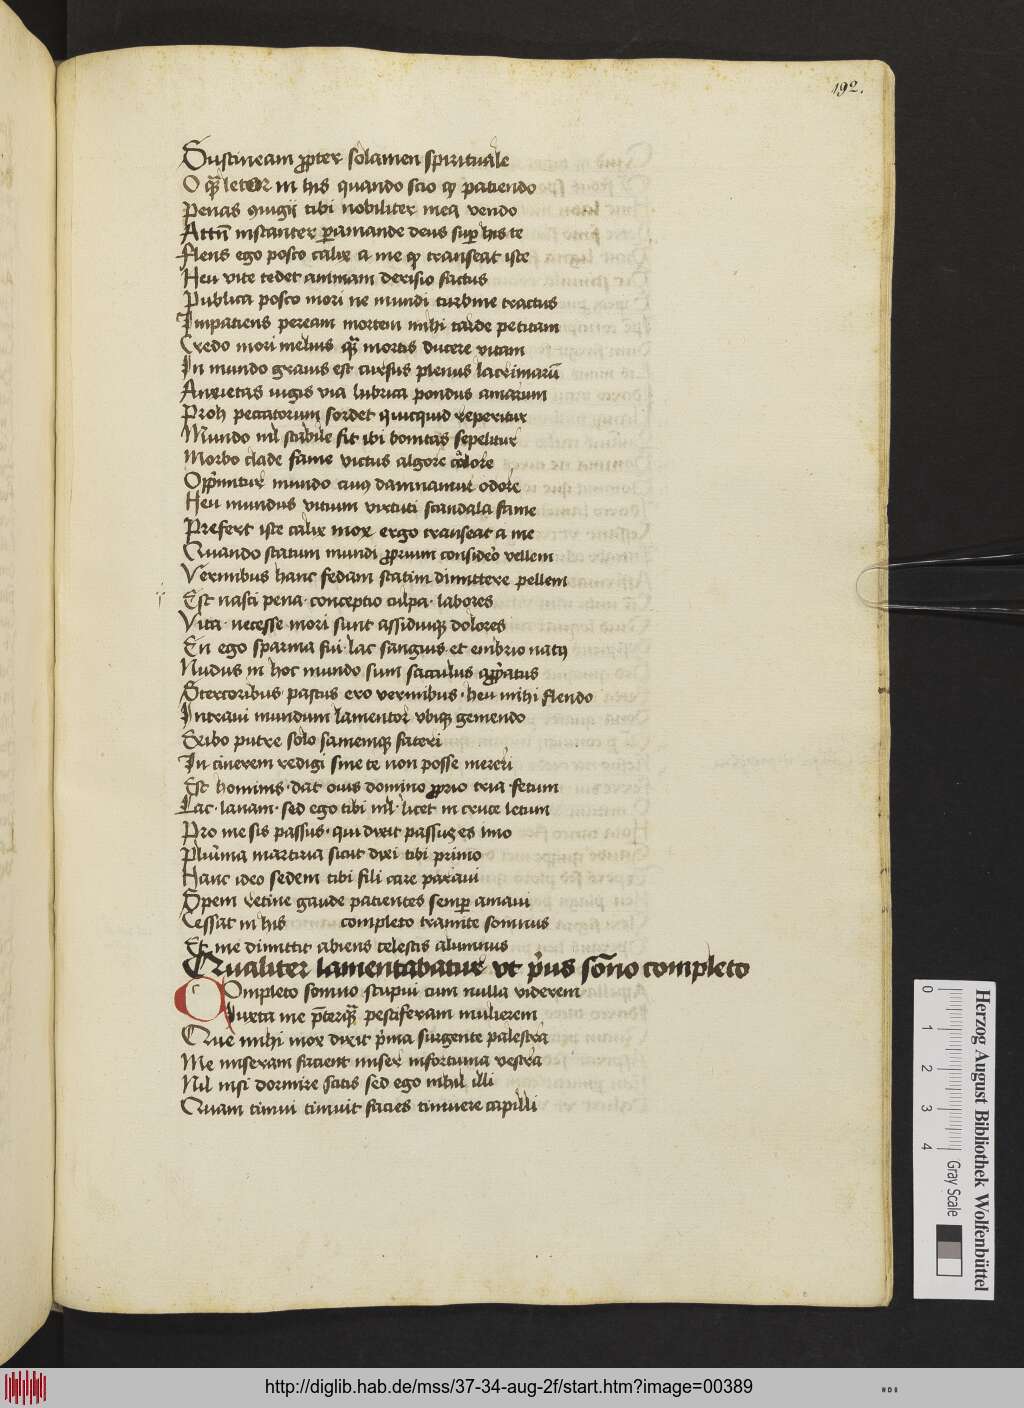 192.
Sustineam ꝓpter solamen spirituale
O qͣ letor in his quando scio ꝙ patiendo
Penas ꝯiugii tibi nobiliter mea vendo
Attn̄ instanter ꝑamande deus suꝑ his te
Flens ego posco calix a me ꝙ transeat iste
Heu vite tedet animam derisio factus
Publica posco mori ne mundi turbine tractus
Impatiens peream mortem mihi tarde petitam
Credo mori melius qͣ mortis ducere vitam
In mundo grauis est cursus plenus lacrimarū
Anxietas iugis via lubrica pondus amarum
Proh peccatorum sordet quicquid reperitur
Mundo nil stabile sit ibi bonitas sepelitur
Morbo clade fame victus algore calore
Opp̓mitur mundo cuiꝰ damnamur odore
Heu mundus vitium virtuti scandala fame
Prefert iste calix mox ergo transeat a me
Quando statum mundi ꝓprium considero vellem
Vermibus hanc fedam statim dimittere pellem
Est nasci pena · conceptio culpa · labores
Vita · necesse mori sunt assiduiqꝫ dolores
En ego sparma fui · lac sanguis et embrio natꝰ
Nudus in hoc mundo sum sacculus app̓atus
Stercoribus pastus ero vermibus · heu mihi flendo
Intraui mundum lamentor vbiqꝫ gemendo
Exibo putre solo saniemqꝫ fateri
In cinerem redigi sine te non posse mereri
Est hominis · dat ouis domino ꝓprio tria · fetum
Lac · lanam · sed ego tibi nil · licet in cruce letum
Pro me sis passus · qui dixit passus es imo
Plurima martiria sicut dixi tibi primo
Hanc ideo sedem tibi fili care paraui
Spem retine gaude patientes semꝑ amaui
Cessat in his completo tramite somnus
Et me dimittit abiens celestis alumnus
Qualiter lamentabatur vt p̓us sōno completo
COmpleto somno stupui cum nulla viderem
Iuxta me p̄terqͣ pestiferam mulierem
Que mihi mox dixit p̓ma surgente palestra
Me miseram facient miser infortunia vestra
Nil nisi dormire scitis sed ego nihil illi
Quam timui timuit facies timuere capilli
Herzog August Bibliothek Wolfenbüttel
0 1 2 3 4
Gray Scale
http://diglib.hab.de/mss/37-34-aug-2f/start.htm?image=00389